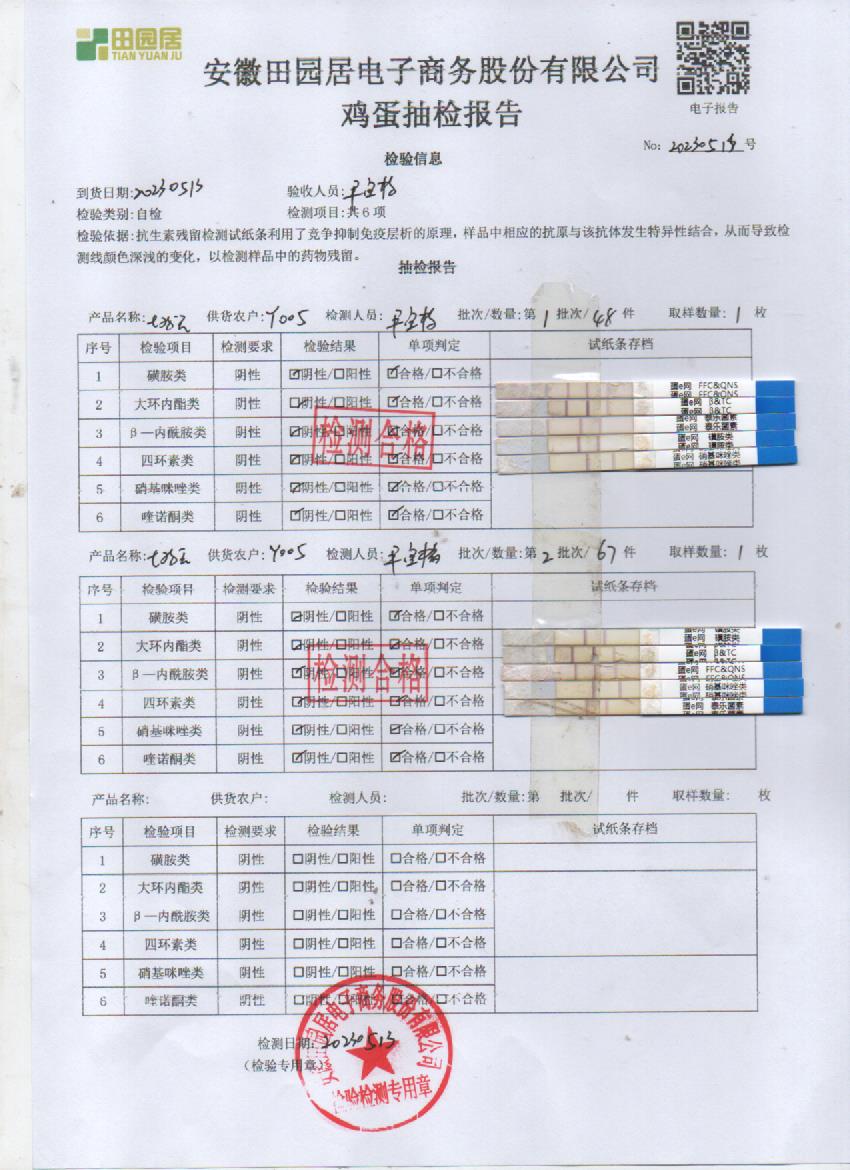 田园居
TIAN YUAN JU
安徽田园居电子商务股份有限公司
鸡蛋抽检报告
电子报告
No: 20230513 号
检验信息
到货日期:20230513 验收人员:
检验类别:自检 检测项目:共6项
检验依据:抗生素残留检测试纸条利用了竞争抑制免疫层析的原理,样品中相应的抗原与该抗体发生特异性结合,从而导致检
测线颜色深浅的变化,以检测样品中的药物残留。
抽检报告
产品名称: 供货农户:Y005 检测人员: 批次/数量:第1批次/48件 取样数量:1枚
序号 检验项目 检测要求 检验结果 单项判定 试纸条存档
1 磺胺类 阴性 ☑阴性/☐阳性 ☑合格/☐不合格
2 大环内酯类 阴性 ☑阴性/☐阳性 ☑合格/☐不合格
3 β—内酰胺类 阴性 ☑阴性/☐阳性 ☑合格/☐不合格
4 四环素类 阴性 ☑阴性/☐阳性 ☑合格/☐不合格
5 硝基咪唑类 阴性 ☑阴性/☐阳性 ☑合格/☐不合格
6 喹诺酮类 阴性 ☑阴性/☐阳性 ☑合格/☐不合格
检测合格
蛋e网 FFC&QNS
蛋e网 FFC&QNS
蛋e网 β&TC
蛋e网 β&TC
蛋e网 泰乐菌素
蛋e网 泰乐菌素
蛋e网 磺胺类
蛋e网 磺胺类
蛋e网 硝基咪唑类
产品名称: 供货农户:Y005 检测人员: 批次/数量:第2批次/67件 取样数量:1枚
序号 检验项目 检测要求 检验结果 单项判定 试纸条存档
1 磺胺类 阴性 ☑阴性/☐阳性 ☑合格/☐不合格
2 大环内酯类 阴性 ☑阴性/☐阳性 ☑合格/☐不合格
3 β—内酰胺类 阴性 ☑阴性/☐阳性 ☑合格/☐不合格
4 四环素类 阴性 ☑阴性/☐阳性 ☑合格/☐不合格
5 硝基咪唑类 阴性 ☑阴性/☐阳性 ☑合格/☐不合格
6 喹诺酮类 阴性 ☑阴性/☐阳性 ☑合格/☐不合格
检测合格
蛋e网 磺胺类
蛋e网 磺胺类
蛋e网 β&TC
蛋e网 FFC&QNS
蛋e网 硝基咪唑类
蛋e网 硝基咪唑类
蛋e网 泰乐菌素
产品名称: 供货农户: 检测人员: 批次/数量:第 批次/ 件 取样数量: 枚
序号 检验项目 检测要求 检验结果 单项判定 试纸条存档
1 磺胺类 阴性 ☐阴性/☐阳性 ☐合格/☐不合格
2 大环内酯类 阴性 ☐阴性/☐阳性 ☐合格/☐不合格
3 β—内酰胺类 阴性 ☐阴性/☐阳性 ☐合格/☐不合格
4 四环素类 阴性 ☐阴性/☐阳性 ☐合格/☐不合格
5 硝基咪唑类 阴性 ☐阴性/☐阳性 ☐合格/☐不合格
6 喹诺酮类 阴性 ☐阴性/☐阳性 ☐合格/☐不合格
检测日期:20230513
(检验专用章)
安徽田园居电子商务股份有限公司
检验检测专用章